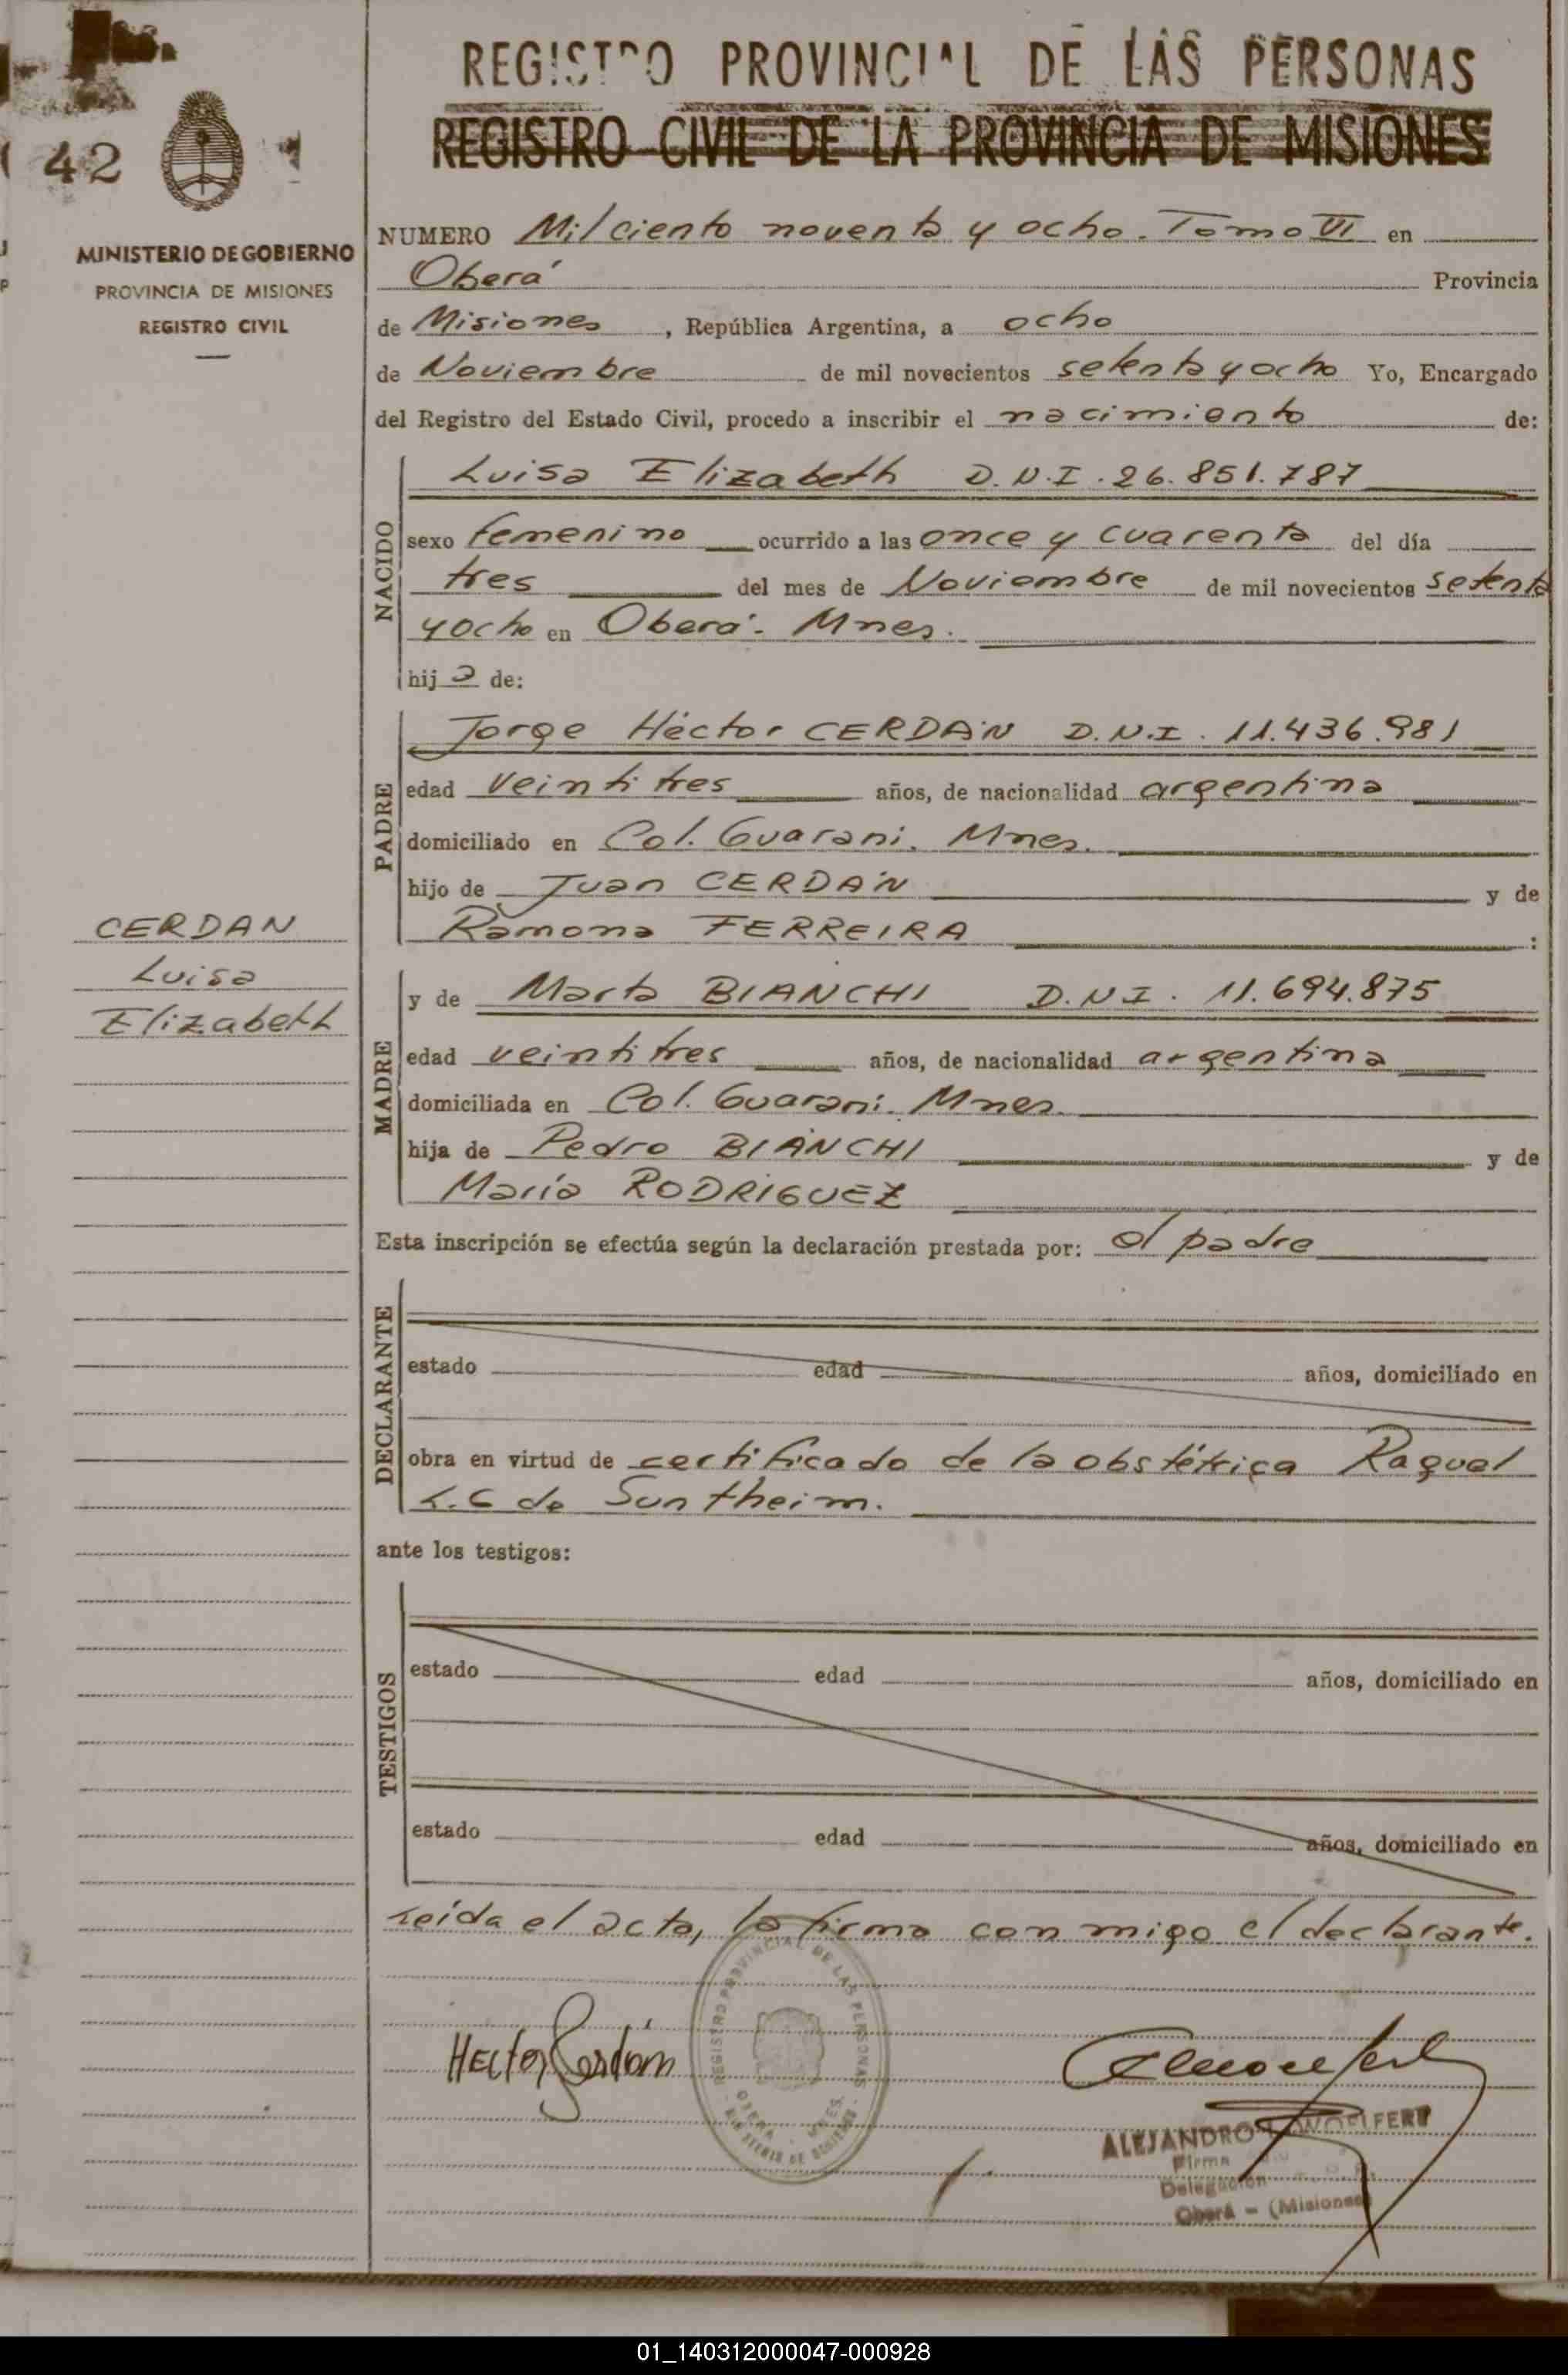 REGISTRO PROVINCIAL DE LAS PERSONAS
REGISTRO CIVIL DE LA PROVINCIA DE MISIONES
42
MINISTERIO DE GOBIERNO
PROVINCIA DE MISIONES
REGISTRO CIVIL
NUMERO Mil ciento noventa y ocho. Tomo VI en
Oberá Provincia
de Misiones, República Argentina, a ocho
de Noviembre de mil novecientos setenta y ocho Yo, Encargado
del Registro del Estado Civil, procedo a inscribir el nacimiento de:
NACIDO
Luisa Elizabeth D.N.I. 26.851.787
sexo femenino ocurrido a las once y cuarenta del día
tres del mes de Noviembre de mil novecientos setenta
y ocho en Oberá. Mnes.
hija de:
PADRE
Jorge Héctor CERDÁN D.N.I. 11.436.981
edad veintitres años, de nacionalidad argentina
domiciliado en Col. Guaraní. Mnes.
hijo de Juan CERDÁN y de
Ramona FERREIRA :
CERDAN
Luisa
Elizabeth
MADRE
y de Marta BIANCHI D.N.I. 11.694.875
edad veintitres años, de nacionalidad argentina
domiciliada en Col. Guaraní. Mnes.
hija de Pedro BIANCHI y de
María RODRIGUEZ
Esta inscripción se efectúa según la declaración prestada por: el padre
DECLARANTE
estado edad años, domiciliado en
obra en virtud de certificado de la obstétrica Raquel
L. C de Suntheim.
ante los testigos:
TESTIGOS
estado edad años, domiciliado en
estado edad años, domiciliado en
Leída el acta, la firma con migo el declarante.
REGISTRO PROVINCIAL DE LAS PERSONAS
OBERA - MNES.
MINISTERIO DE GOBIERNO
Hector Cerdán
ALEJANDRO WOELFERT
Firma
Delegación
Oberá - (Misiones)
01_140312000047-000928